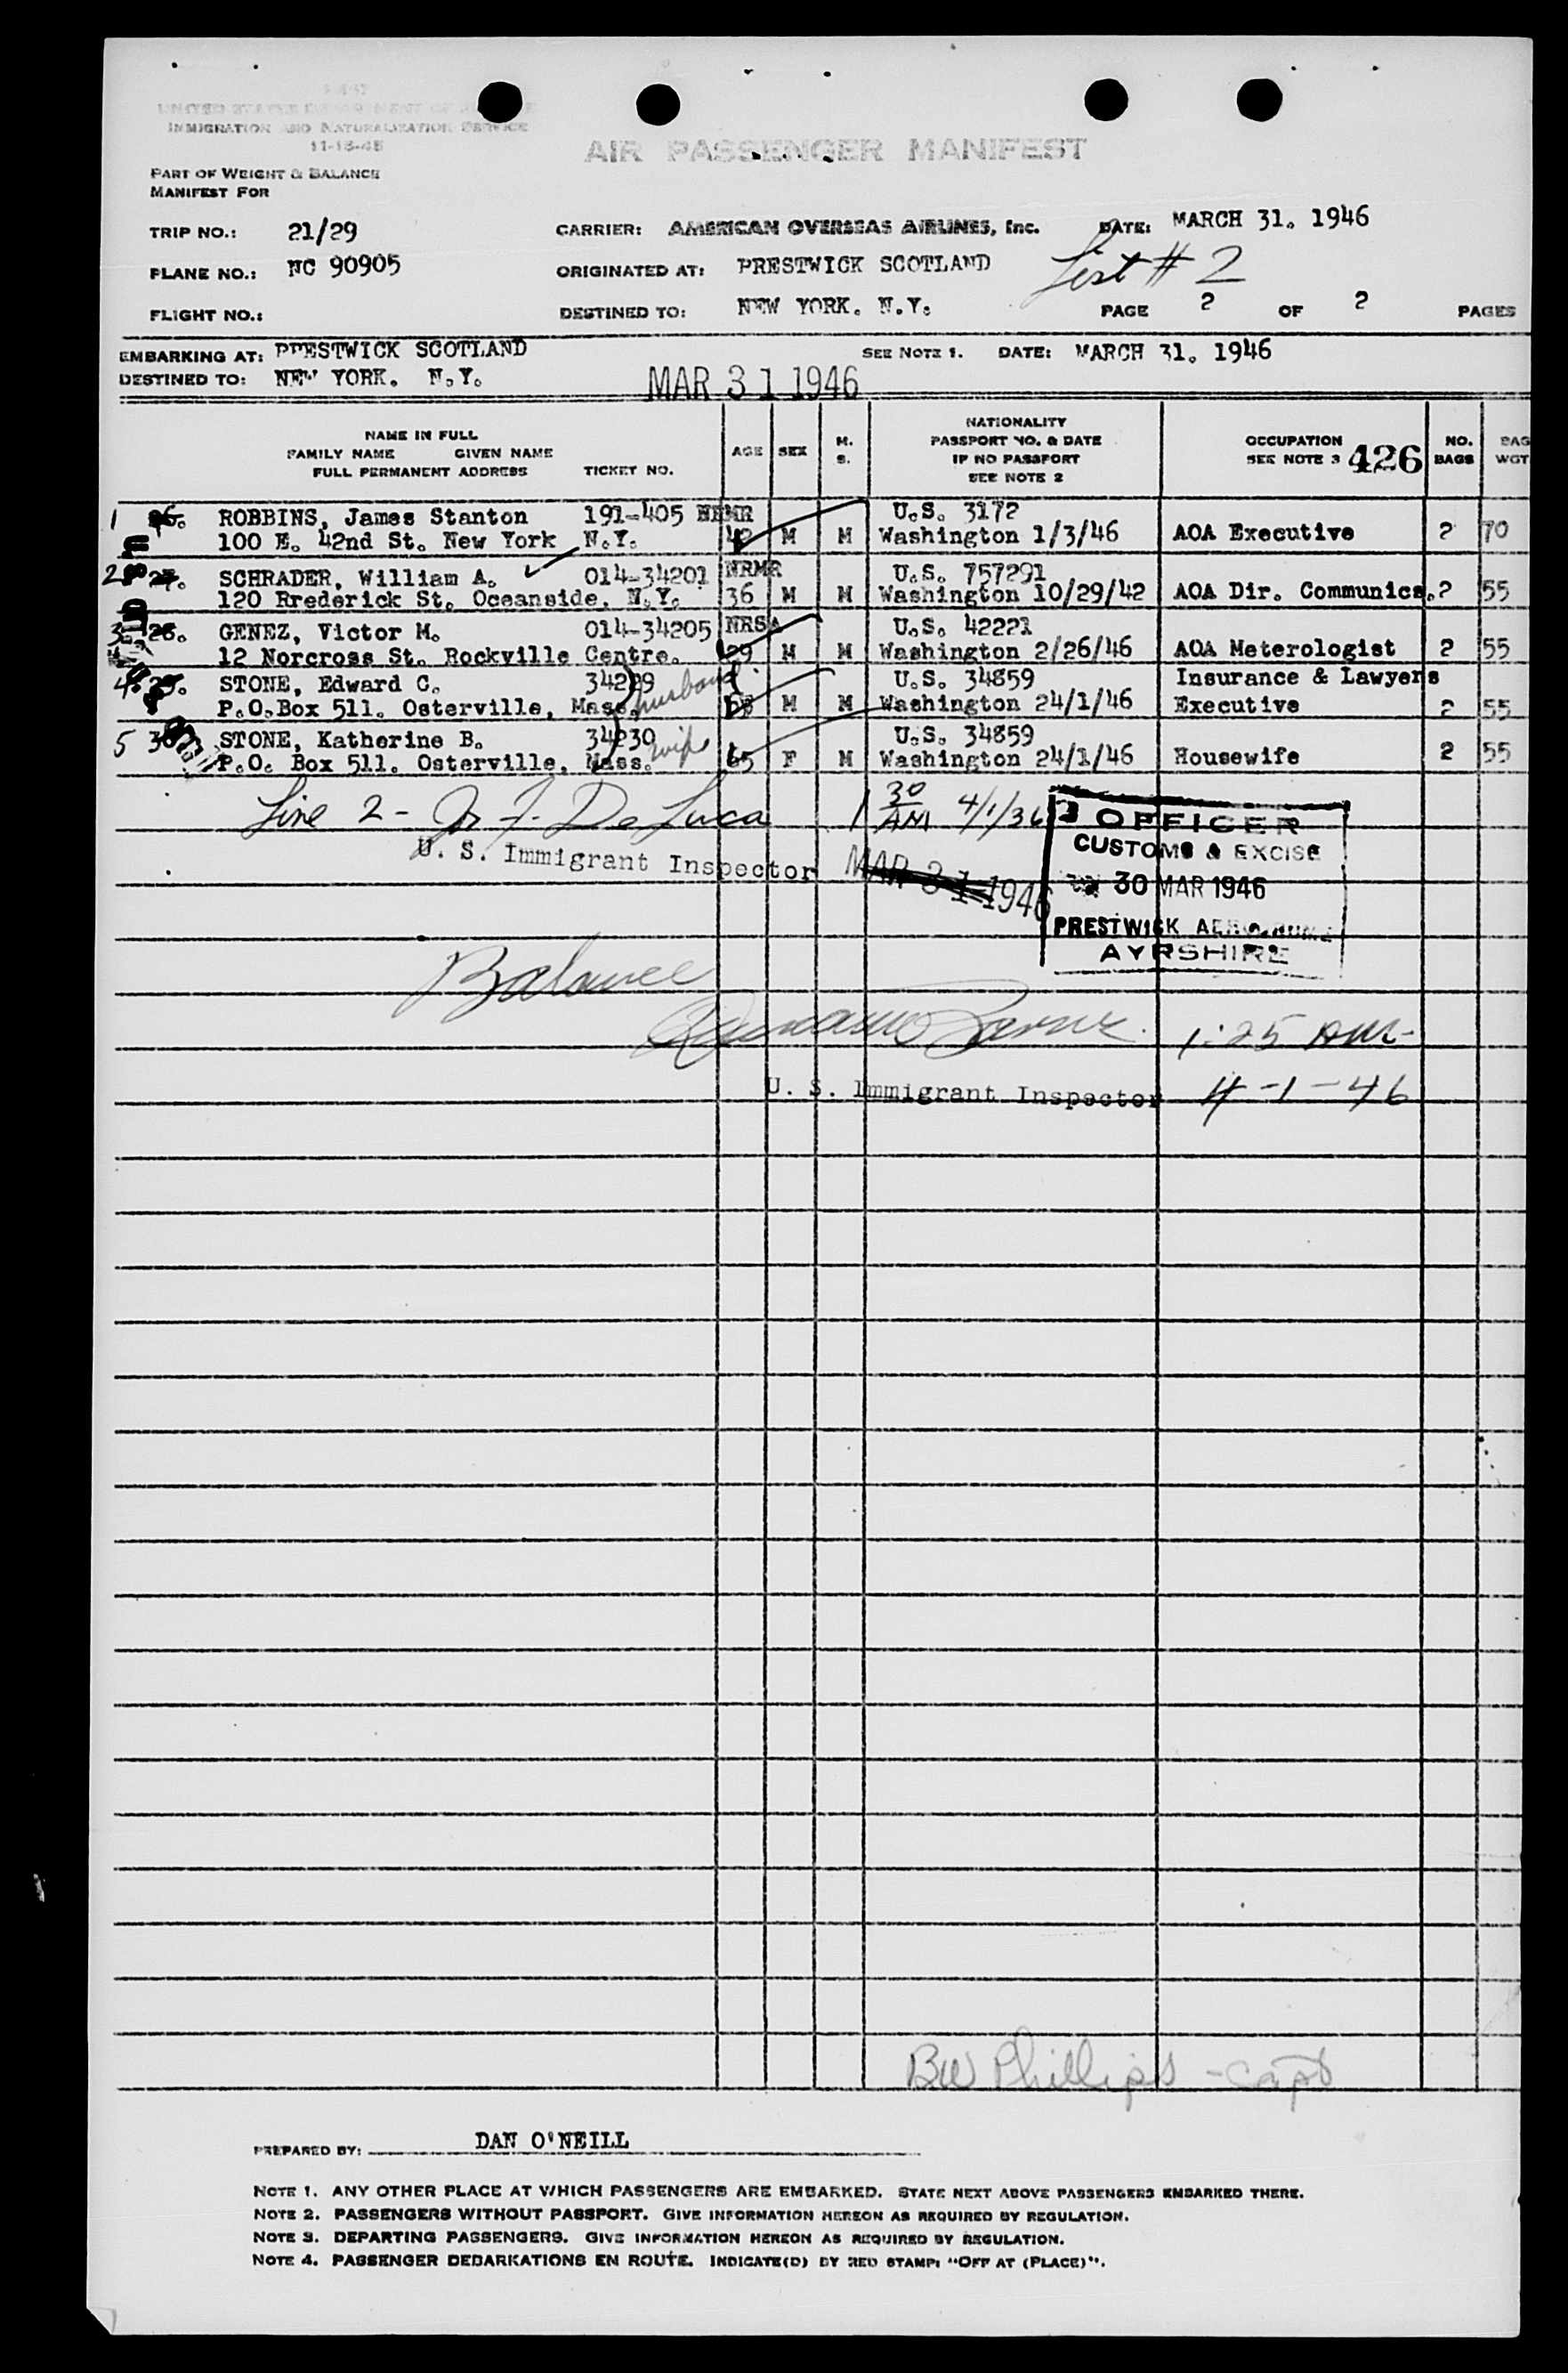 UNITED STATES DEPARTMENT OF JUSTICE
IMMIGRATION AND NATURALIZATION SERVICE
11-13-45
AIR PASSENGER MANIFEST
PART OF WEIGHT & BALANCE
MANIFEST FOR
TRIP NO.: 21/29 CARRIER: AMERICAN OVERSEAS AIRLINES, Inc. DATE: MARCH 31. 1946
PLANE NO.: NC 90905 ORIGINATED AT: PRESTWICK SCOTLAND List # 2
FLIGHT NO.: DESTINED TO: NEW YORK. N.Y. PAGE 2 OF 2 PAGES
EMBARKING AT: PRESTWICK SCOTLAND SEE NOTE 1. DATE: MARCH 31. 1946
DESTINED TO: NEW YORK. N.Y. MAR 31 1946
NAME IN FULL
FAMILY NAME GIVEN NAME
FULL PERMANENT ADDRESS TICKET NO. AGE SEX M. S. NATIONALITY PASSPORT NO. & DATE IF NO PASSPORT SEE NOTE 2 OCCUPATION SEE NOTE 3 426 NO. BAGS BAG WGT
1 26. ROBBINS, James Stanton 191-405 U.S. 3172
100 E. 42nd St. New York N.Y. 42 M M Washington 1/3/46 AOA Executive 2 70
2 27. SCHRADER, William A. 014-34201 NRMR U.S. 757291
120 Rrederick St. Oceanside, N.Y. 36 M M Washington 10/29/42 AOA Dir. Communics. 2 55
3 28. GENEZ, Victor M. 014-34205 NRSA U.S. 42221
12 Norcross St. Rockville Centre. 29 M M Washington 2/26/46 AOA Meterologist 2 55
4 29. STONE, Edward C. 34229 husband U.S. 34859 Insurance & Lawyers
P.O.Box 511. Osterville, Mass. M M Washington 24/1/46 Executive 2 55
5 30. STONE, Katherine B. 34230 wife U.S. 34859
P.O. Box 511. Osterville, Mass. 65 F M Washington 24/1/46 Housewife 2 55
Line 2 - Jr. F. De Luca 1 30 AM 4/1/36
U. S. Immigrant Inspector MAR 31 1946
OFFICER
CUSTOMS & EXCISE
30 MAR 1946
PRESTWICK AERODROME
AYRSHIRE
Balance
1:25 AM-
U. S. Immigrant Inspector 4-1-46
Bill Phillips - Capt
PREPARED BY: DAN O'NEILL
NOTE 1. ANY OTHER PLACE AT WHICH PASSENGERS ARE EMBARKED. STATE NEXT ABOVE PASSENGERS EMBARKED THERE.
NOTE 2. PASSENGERS WITHOUT PASSPORT. GIVE INFORMATION HEREON AS REQUIRED BY REGULATION.
NOTE 3. DEPARTING PASSENGERS. GIVE INFORMATION HEREON AS REQUIRED BY REGULATION.
NOTE 4. PASSENGER DEBARKATIONS EN ROUTE. INDICATE(D) BY RED STAMP: "OFF AT (PLACE)".